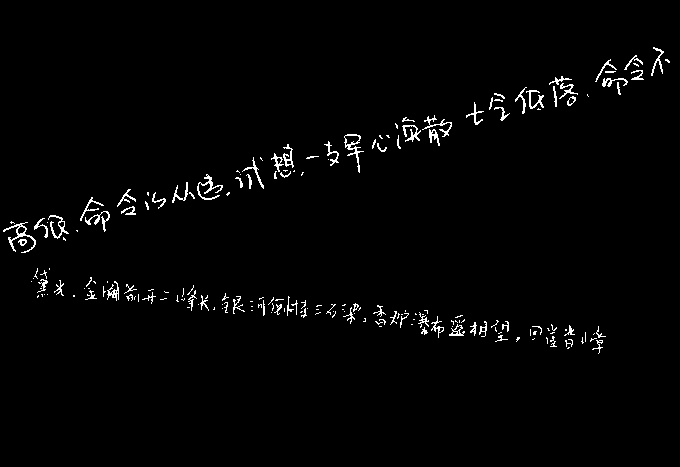 高低,命令的从违,试想,一支军心涣散 士气低落,命令不
黛光,金阙前开二峰长,银河倒挂三石梁,香炉瀑布遥相望,回崖沓嶂